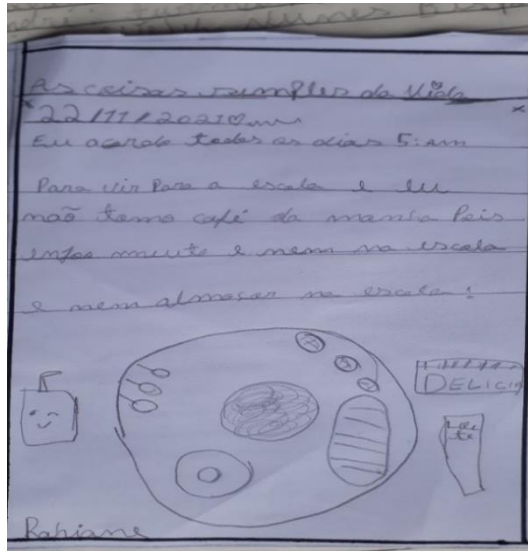 As coisas simples da Vida
22/11/2021
Eu acordo todos os dias 5:am
Para vir Para a escola e eu
não tomo café da manhã Pois
enjoo muito e nem na escola
e nem almoçar na escola!
DELICIO
Lei
te
Rahiane